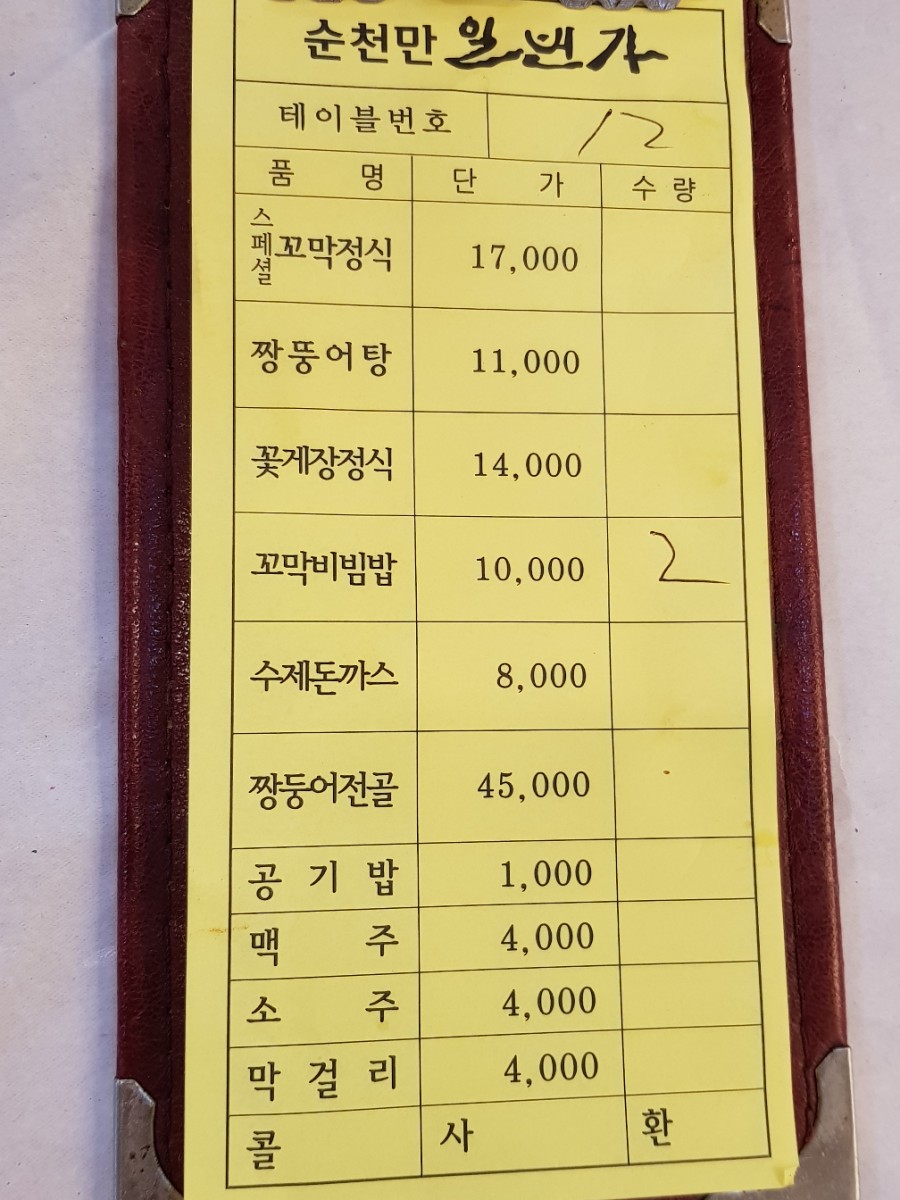 순천만 일번가
테이블번호 12
품 명 단 가 수 량
스페셜 꼬막정식 17,000
짱뚱어탕 11,000
꽃게장정식 14,000
꼬막비빔밥 10,000 2
수제돈까스 8,000
짱둥어전골 45,000
공 기 밥 1,000
맥 주 4,000
소 주 4,000
막 걸 리 4,000
콜 사 환